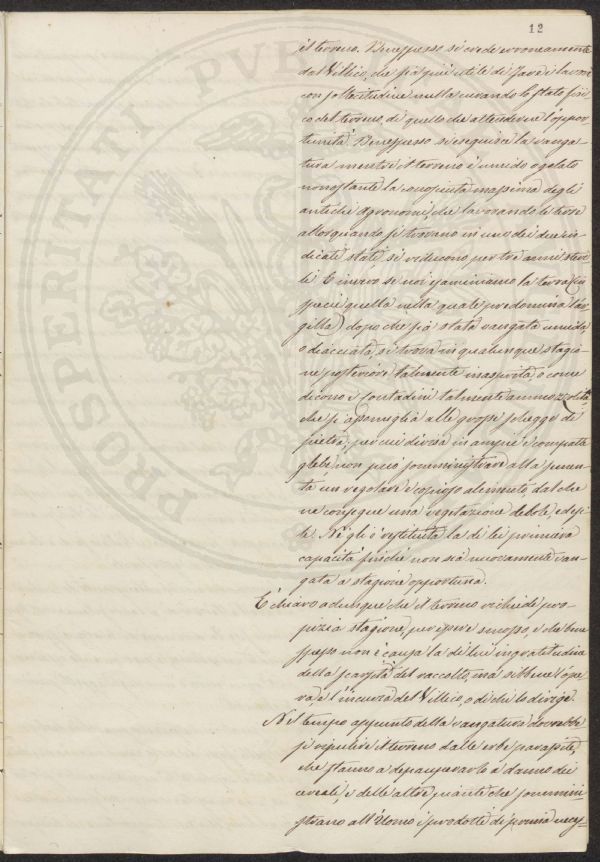 12
il terreno. Benespesso si crede erroneamente
dal Villico, che sia più utile di fare i lavori
con sollecitudine nulla curando lo stato fisi
co del terreno di quello che attendere l'oppor
tunità. Benespesso si eseguisce la vanga
tura mentre il terreno è umido o gelato
nonostante la conosciuta massima degli
antichi Agronomi, che lavorando le terre
allorquando si trovano in uno dei due in
dicati stati si riducono per tre anni steri
li. E invero se noi esaminiamo la terra (in
specie quella nella quale predomina l'ar
gilla) dopo che sia stata vangata umida
o diacciata, si trova in qualunque stagio
ne posteriore talmente inasprita, o come
dicono i contadini talmente ammozzolita,
che si assomiglia alle grosse schegge di
pietra, per cui divisa in ampie e compatte
glebe non può somministrare alla semen
ta un regolare e copioso alimento, dal che
ne consegue una vegetazione debole, e
Né gli è restituita la di lei primiera
capacità finchè non sia nuovamente van
gata a stagione opportuna.
È chiaro adunque che il terreno richiede pro
pizia stagione, per essere smosso, e che bene
spesso non è causa la di lui ingratitudine
della scarsità del raccolto, ma sibbene l'ope
ra, e l'incuria del Villico, o di chi lo dirige.
Nel tempo appunto della vangatura dovrebbe
si ripulire il terreno dalle erbe parassite,
che stanno a depauperarlo a danno dei
cereali, e delle altre piante che sommini
strano all'Uomo i prodotti di prima neces
PROSPERITATI PUBLICAE